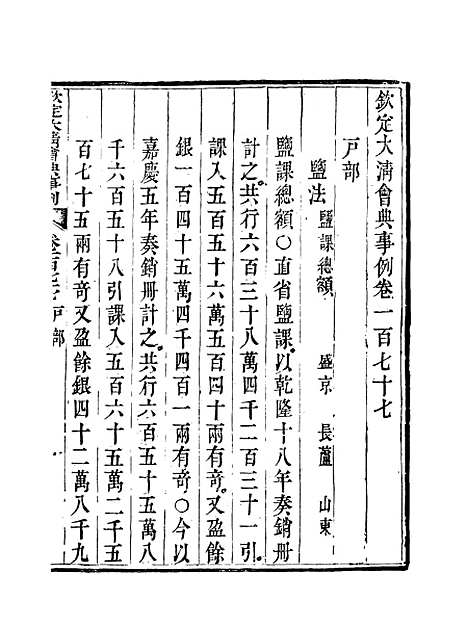 欽定大清會典事例卷一百七十七
戸部
鹽法鹽課總額 盛京 長蘆 山東
鹽課總額○直省鹽課以乾隆十八年奏銷册
計之共行六百三十八萬四千二百三十一引
課入五百五十六萬五百四十兩有奇又盈餘
銀一百四十五萬四千四百一兩有奇○今以
嘉慶五年奏銷册計之共行六百五十五萬八
千六百五十八引課入五百六十五萬二千五
百七十五兩有奇又盈餘銀四十二萬八千九
欽定大清會典事例 卷一百七十七 戸部